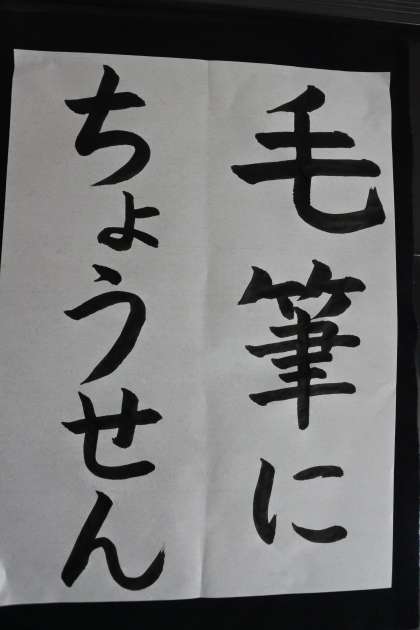 毛筆に
ちょうせん